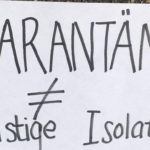 ARANTÄN
≠
stige Isolat